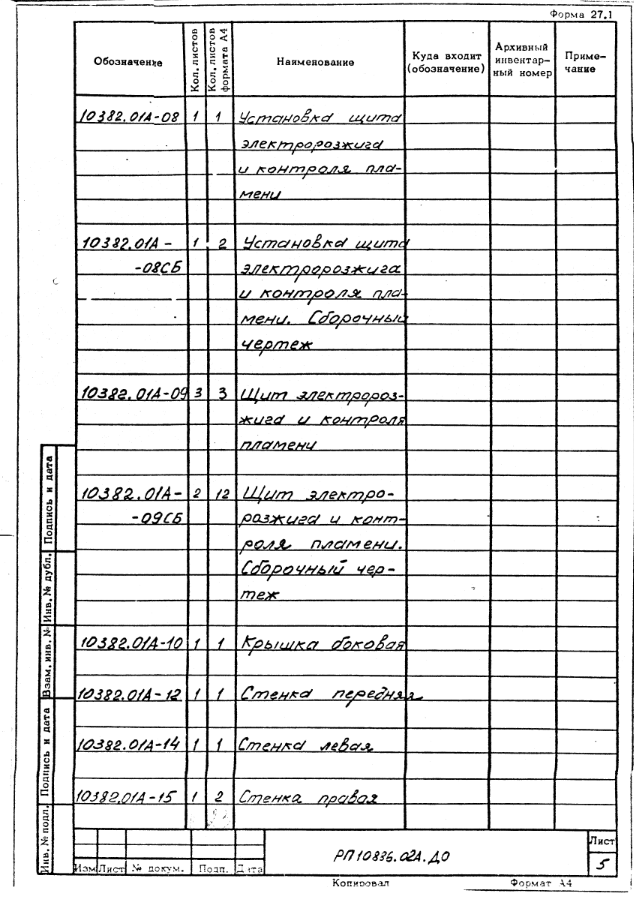 Форма 27.1
Обозначение
Кол. листов
Кол. листов формата А4
Наименование
Куда входит (обозначение)
Архивный инвентар-
ный номер
Приме-
чание
10382.01А-08 1 1 Установка щита
электророзжига
и контроля пла-
мени
10382.01А- 1 2 Установка щита
-08СБ электророзжига
и контроля пла-
мени. Сборочный
чертеж
10382.01А-09 3 3 Щит электророз-
жига и контроля
пламени
10382.01А- 2 12 Щит электро-
-09СБ розжига и конт-
роля пламени.
Сборочный чер-
теж
10382.01А-10 1 1 Крышка боковая
10382.01А-12 1 1 Стенка передняя
10382.01А-14 1 1 Стенка левая
10382.01А-15 1 2 Стенка правая
Подпись и дата
Инв. № дубл.
Взам. инв. №
Подпись и дата
Инв. № подл.
Изм Лист № докум. Подп. Дата
РП10836.02А.Д0
Лист
5
Копировал Формат А4